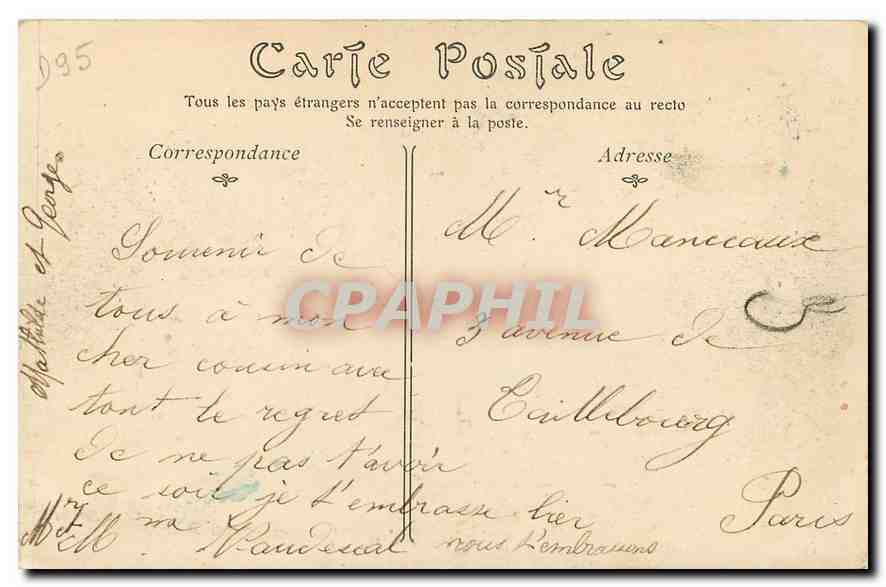 D95
Carte Postale
Tous les pays étrangers n'acceptent pas la correspondance au recto
Se renseigner à la poste.
Correspondance
Souvenir de
tous à mon
cher cousin avec
tout le regret
de ne pas t'avoir
ce soir je t'embrasse bien
Mr et Mma
nous t'embrassons
Mathilde et George
Adresse
Mr. Manceaux
3 avenue de
Taillebourg
Paris
CPAPHIL